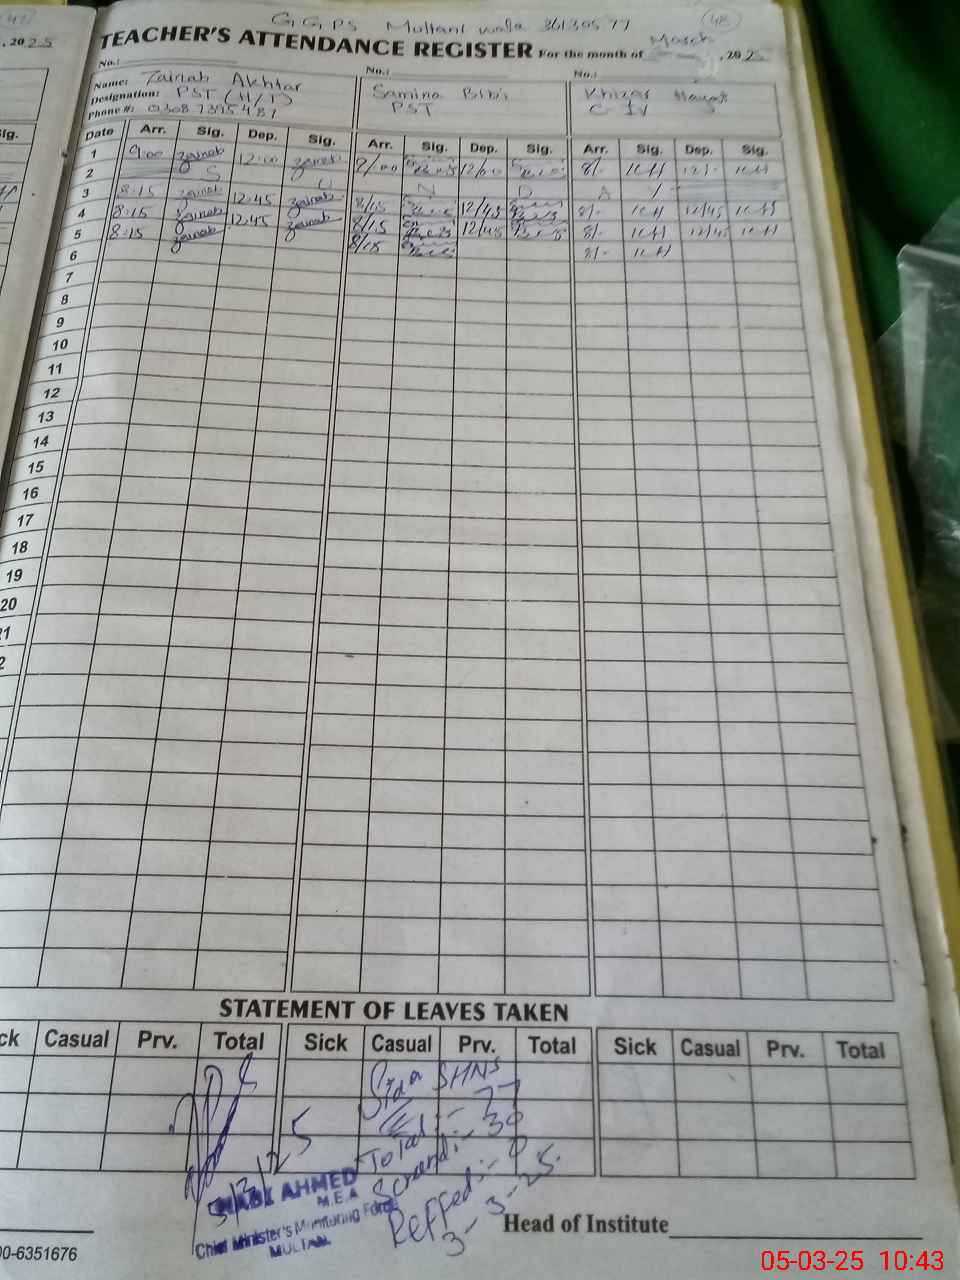 47
G G P S Multani wala 36130577
48
, 2025
TEACHER'S ATTENDANCE REGISTER For the month of March , 2025
No.: No.: No.:
Name: Zainab Akhtar Samina Bibi Khizar Hayat
Designation: PST (H/T) PST C-IV
Phone #: 03087395487
Sig.
Date Arr. Sig. Dep. Sig. Arr. Sig. Dep. Sig. Arr. Sig. Dep. Sig.
1 9:00 zainab 12:00 zainab 9/00 12/00 8/- KH 12/- KH
2 S U N D A Y
3 8:15 zainab 12:45 zainab 8/15 12/45 8/- KH 12/45 KH
4 8:15 zainab 12:45 zainab 8/15 12/45 8/- KH 12/45 KH
5 8:15 zainab 8/15 8/- KH
6
7
8
9
10
11
12
13
14
15
16
17
18
19
20
21
2
STATEMENT OF LEAVES TAKEN
ck Casual Prv. Total Sick Casual Prv. Total Sick Casual Prv. Total
SHNS
Total :- 77
:- 30
Reffed :- 0
3-3-25.
5/3/25
NABI AHMED
M.E.A
Chief Minister's Monitoring Force
MULTAN.
Head of Institute
00-6351676
05-03-25 10:43